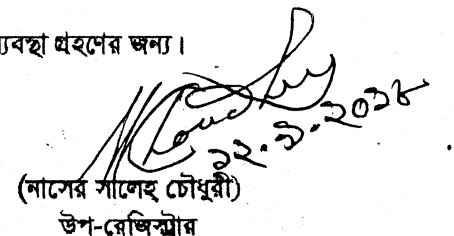 ্যবস্থা গ্রহণের জন্য।
১২.৯.২০১৮
(নাসের সালেহ চৌধুরী)
উপ-রেজিস্ট্রার